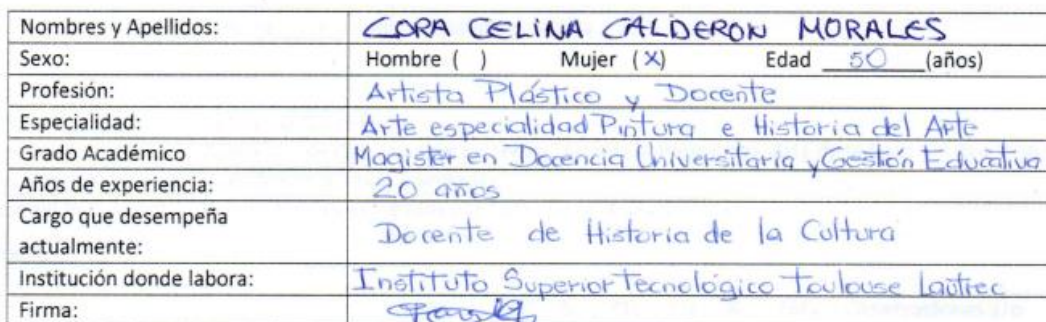 Nombres y Apellidos: CORA CELINA CALDERON MORALES
Sexo: Hombre ( ) Mujer (X) Edad 50 (años)
Profesión: Artista Plástico y Docente
Especialidad: Arte especialidad Pintura e Historia del Arte
Grado Académico Magister en Docencia Universitaria y Gestión Educativa
Años de experiencia: 20 años
Cargo que desempeña
actualmente: Docente de Historia de la Cultura
Institución donde labora: Instituto Superior Tecnológico Toulouse Lautrec
Firma: